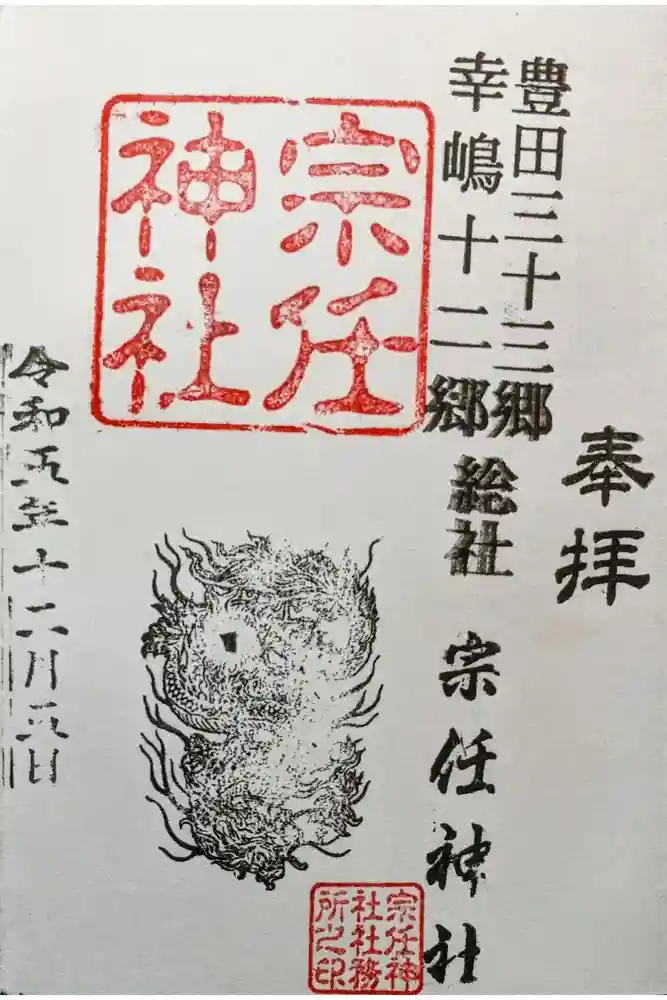 奉拝
豊田三十三郷
幸嶋十二郷
総社 宗任神社
宗任
神社
宗任神
社社務
所之印
令和五年十二月五日